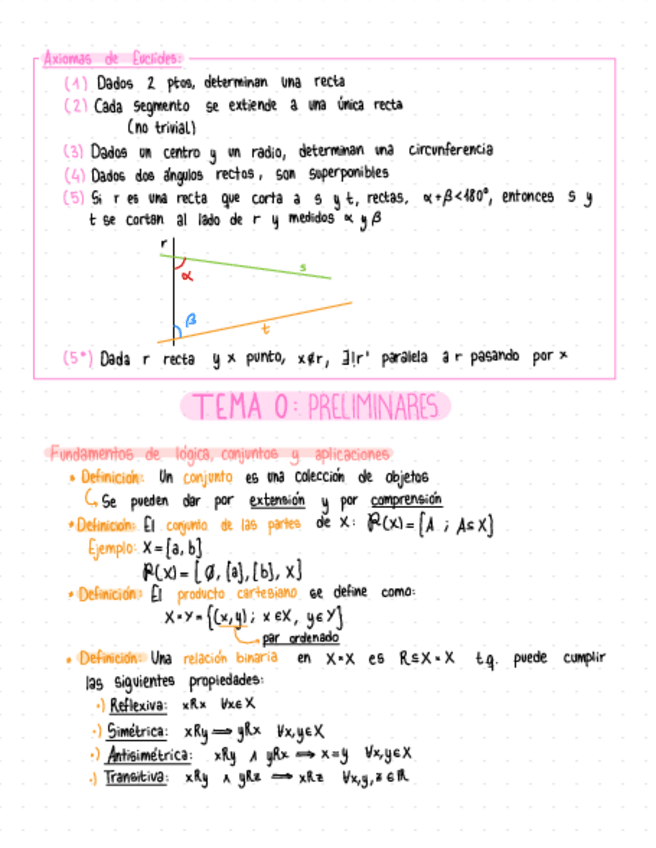 Axiomas de Euclides:
(1) Dados 2 ptos, determinan una recta
(2) Cada segmento se extiende a una única recta
(no trivial)
(3) Dados un centro y un radio, determinan una circunferencia
(4) Dados dos ángulos rectos, son superponibles
(5) Si r es una recta que corta a s y t, rectas, α+β<180°, entonces s y
t se cortan al lado de r y medidos α y β
r
α
s
β
t
(5*) Dada r recta y x punto, x∉r, ∃!r' paralela a r pasando por x
TEMA 0: PRELIMINARES
Fundamentos de lógica, conjuntos y aplicaciones
• Definición: Un conjunto es una colección de objetos
Se pueden dar por extensión y por comprensión
• Definición: El conjunto de las partes de X: P(X)={A ; A⊆X}
Ejemplo: X={a, b}
P(X)={∅, {a}, {b}, X}
• Definición: El producto cartesiano se define como:
X×Y={(x,y); x∈X, y∈Y}
par ordenado
• Definición: Una relación binaria en X×X es R⊆X×X t.q. puede cumplir
las siguientes propiedades:
·) Reflexiva: xRx ∀x∈X
·) Simétrica: xRy ⟹ yRx ∀x,y∈X
·) Antisimétrica: xRy ∧ yRx ⟹ x=y ∀x,y∈X
·) Transitiva: xRy ∧ yRz ⟹ xRz ∀x,y,z∈R